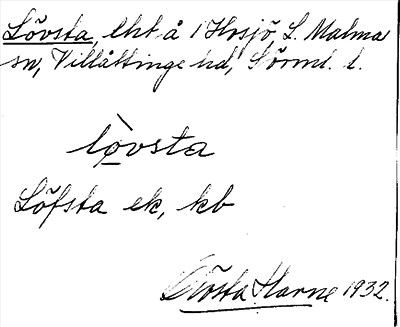 Lövsta, lht å 1 Hosjö, L. Malma
sn, Villåttinge hd, Sörml. l.
lòvsta
Löfsta ek, kb
Gösta Harne 1932.